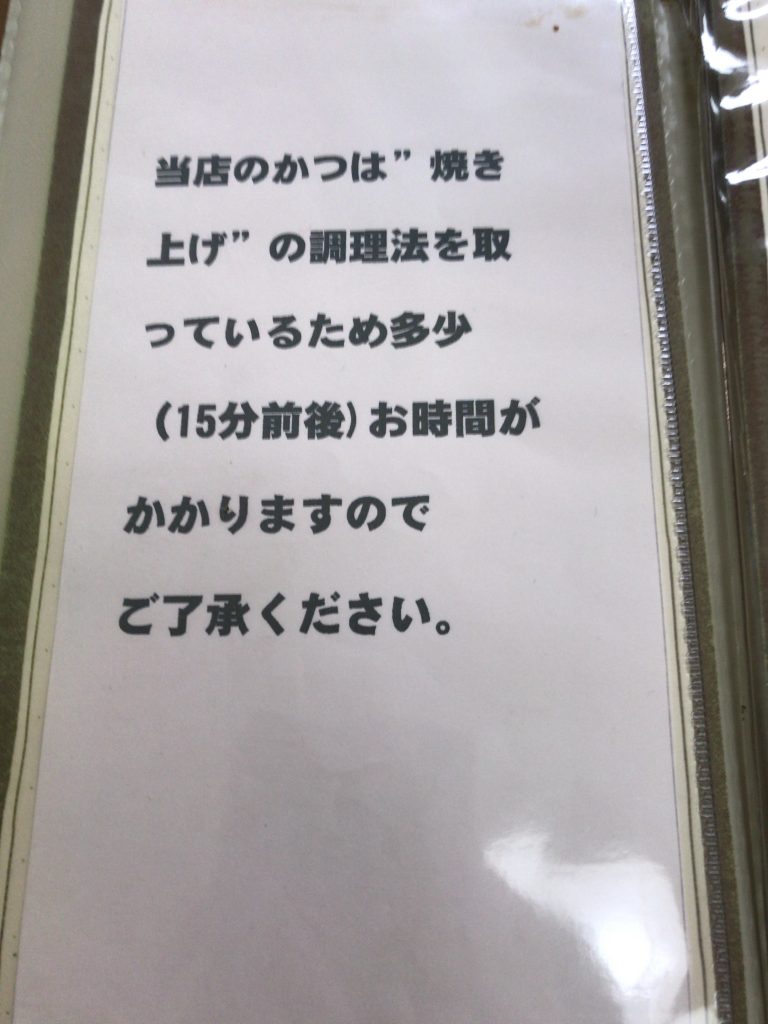 当店のかつは”焼き
上げ”の調理法を取
っているため多少
(15分前後)お時間が
かかりますので
ご了承ください。